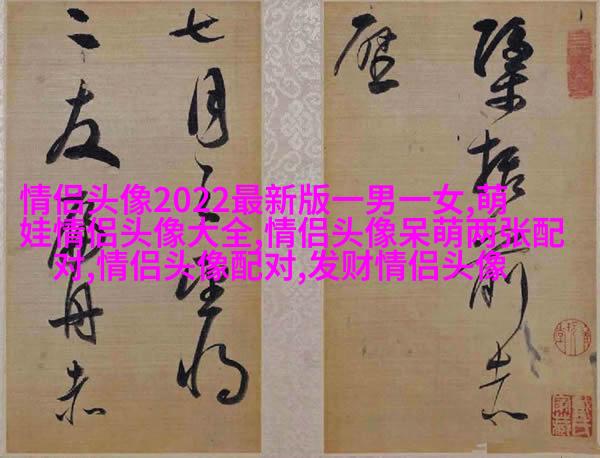 情侣头像2022最新版一男一女,萌
娃情侣头像大全,情侣头像呆萌两张配
对,情侣头像配对,发财情侣头像
括前赤
壁
七月之望將
二友舟赤